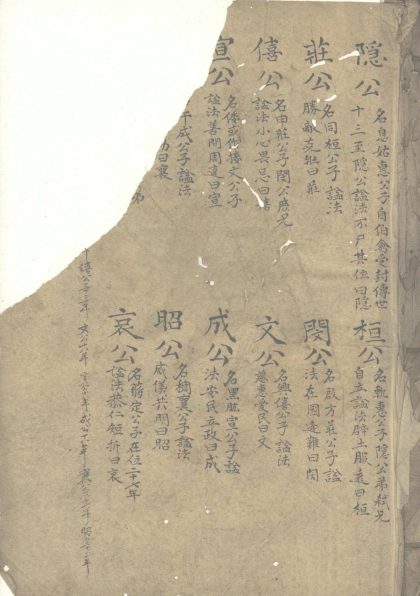 隐公
名息姑惠公子自伯禽受封傳世
十三至隐公謚法不尸其位曰隐
桓公
名軌惠公子隐公弟弒兄
自立謚法辟土服遠曰桓
莊公
名同桓公子謚法
勝敵克壯曰莊
閔公
名啟方莊公子謚
法在國逢難曰閔
僖公
名申莊公子閔公庶兄
謚法小心畏忌曰僖
文公
名興僖公子謚法
慈惠愛民曰文
宣公
名倭或作接文公子
謚法善問周達曰宣
成公
名黑肱宣公子謚
法安民立政曰成
午成公子謚法
功曰襄
昭公
名裯襄公子謚法
威儀共明曰昭
弟
哀公
名蔣定公子在位二十七年
謚法恭仁短折曰哀
僖公三十三年 文公十八年 宣公十八年 成公十八年 襄公三十一年 昭公三十二年